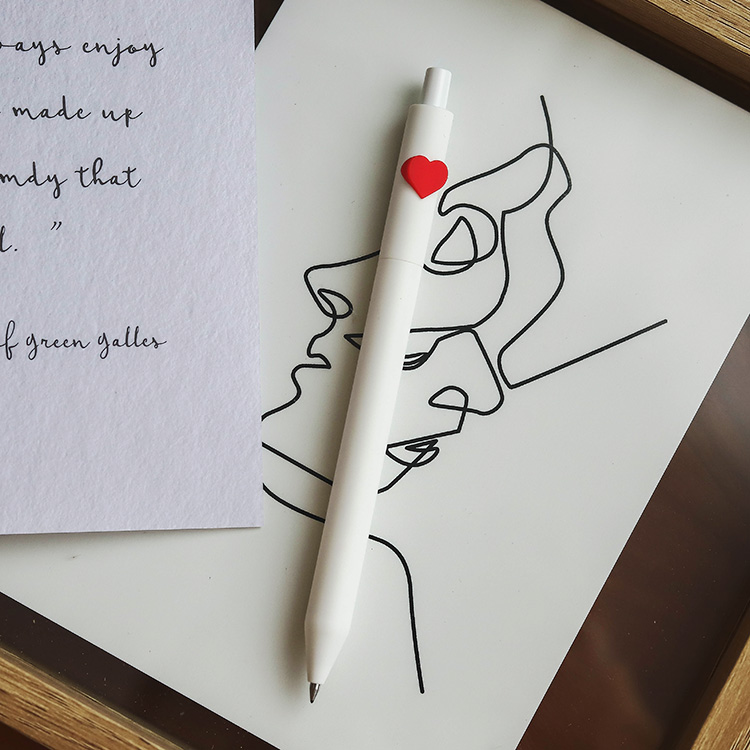 ways enjoy
made up
mdy that
d. ”
of green galles